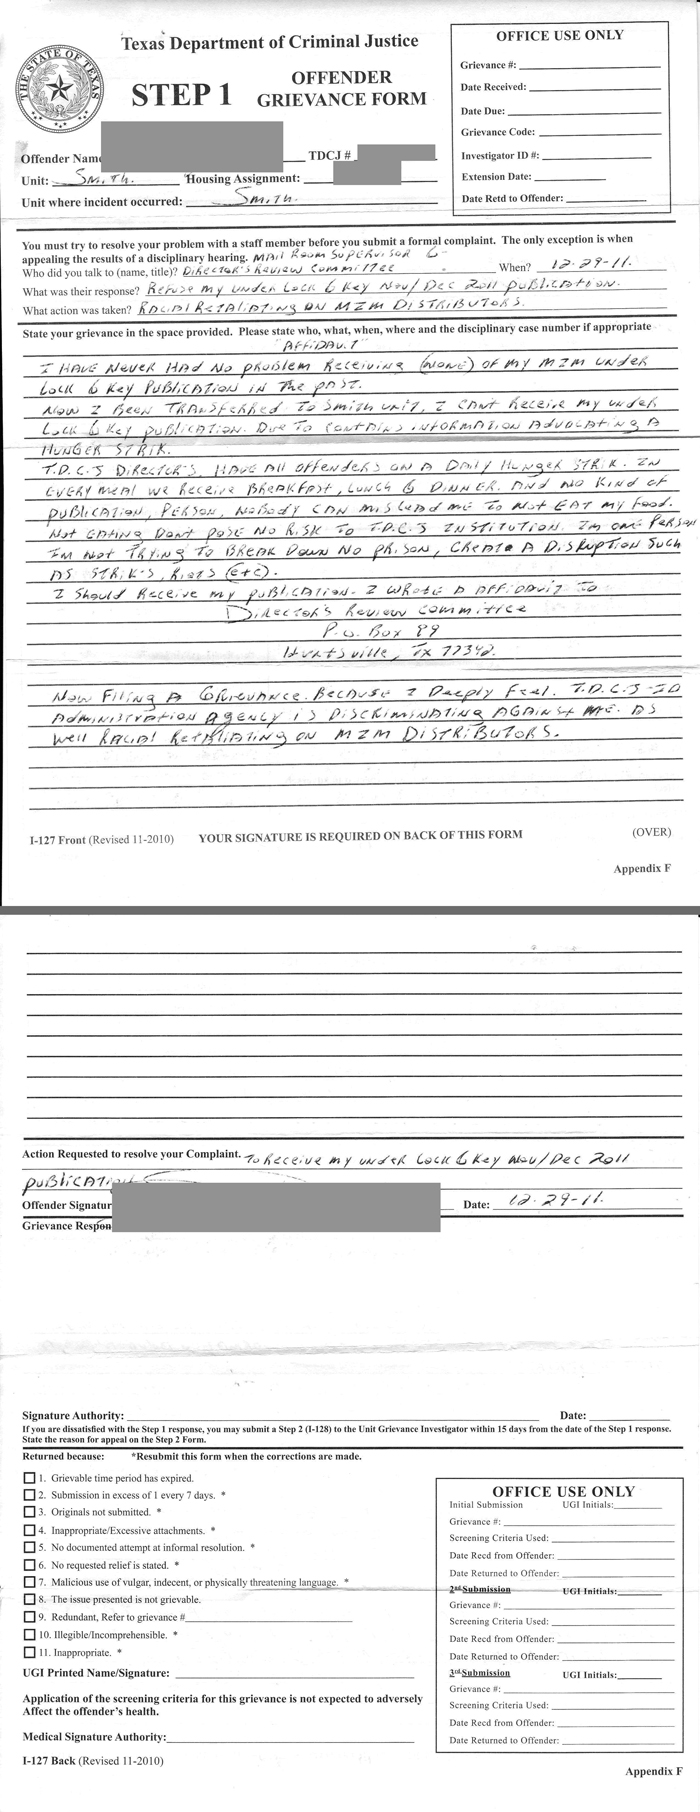 THE STATE OF TEXAS
Texas Department of Criminal Justice
STEP 1
OFFENDER
GRIEVANCE FORM
OFFICE USE ONLY
Grievance #:
Date Received:
Date Due:
Grievance Code:
Investigator ID #:
Extension Date:
Date Retd to Offender:
Offender Name
TDCJ #
Unit: Smith. Housing Assignment:
Unit where incident occurred: Smith.
You must try to resolve your problem with a staff member before you submit a formal complaint. The only exception is when
appealing the results of a disciplinary hearing. Mail Room Supervisor &
Who did you talk to (name, title)? Director's Review Committee When? 12-29-11.
What was their response? Refuse my under Lock & Key Nov/Dec 2011 publication.
What action was taken? Racial Retaliating on MIM Distributors.
State your grievance in the space provided. Please state who, what, when, where and the disciplinary case number if appropriate
"Affidavit"
I have never had no problem receiving (none) of my MIM under
Lock & Key publication in the past.
Now I been transferred to Smith unit, I cant receive my under
Lock & Key publication. Due to contains information advocating a
hunger strik.
T.D.C.J Director's have all offenders on a daily hunger strik. In
every meal we receive breakfast, lunch & dinner. And no kind of
publication, person, nobody can mislead me to not eat my food.
Not eating dont pose no risk to T.D.C.J institution. Im one person
Im not trying to break down no prison, create a disruption such
as strik's, riots (etc).
I should receive my publication. I wrote a affidavit to
Director's Review Committee
P.O. Box 99
Huntsville, Tx 77342.
Now filing a Grievance. Because I deeply feel. T.D.C.J-ID
administration agency is discriminating against me. As
well racial retaliating on MIM Distributors.
I-127 Front (Revised 11-2010) YOUR SIGNATURE IS REQUIRED ON BACK OF THIS FORM (OVER)
Appendix F
Action Requested to resolve your Complaint. To receive my under Lock & Key Nov/Dec 2011
publication
Offender Signatur
Date: 12-29-11.
Grievance Respon
Signature Authority: Date:
If you are dissatisfied with the Step 1 response, you may submit a Step 2 (I-128) to the Unit Grievance Investigator within 15 days from the date of the Step 1 response.
State the reason for appeal on the Step 2 Form.
Returned because: *Resubmit this form when the corrections are made.
1. Grievable time period has expired.
2. Submission in excess of 1 every 7 days. *
3. Originals not submitted. *
4. Inappropriate/Excessive attachments. *
5. No documented attempt at informal resolution. *
6. No requested relief is stated. *
7. Malicious use of vulgar, indecent, or physically threatening language. *
8. The issue presented is not grievable.
9. Redundant, Refer to grievance #
10. Illegible/Incomprehensible. *
11. Inappropriate. *
UGI Printed Name/Signature:
Application of the screening criteria for this grievance is not expected to adversely
Affect the offender's health.
Medical Signature Authority:
I-127 Back (Revised 11-2010)
OFFICE USE ONLY
Initial Submission UGI Initials:
Grievance #:
Screening Criteria Used:
Date Recd from Offender:
Date Returned to Offender:
2nd Submission UGI Initials:
Grievance #:
Screening Criteria Used:
Date Recd from Offender:
Date Returned to Offender:
3rd Submission UGI Initials:
Grievance #:
Screening Criteria Used:
Date Recd from Offender:
Date Returned to Offender:
Appendix F